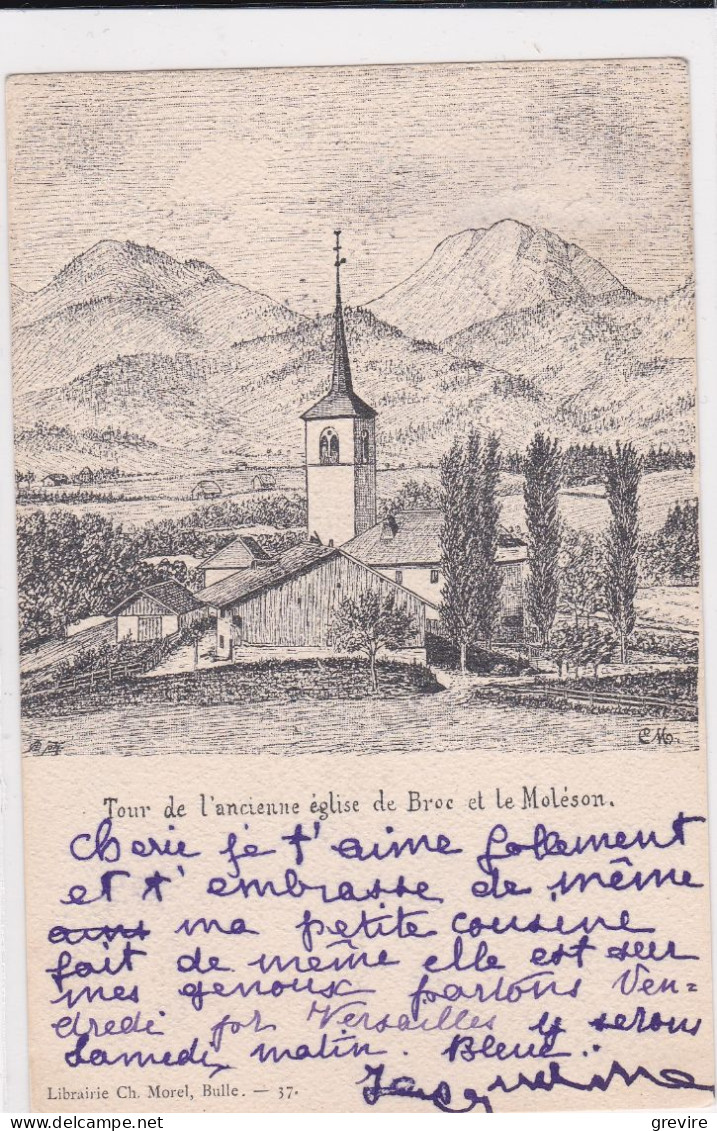 CM.
Tour de l'ancienne église de Broc et le Moléson.
Cherie je t'aime follement
et t'embrasse de même
ma petite cousine
fait de même elle est sur
mes genoux partons Ven=
dredi Versailles y serons
Samedi matin. Bleue.
Jacqueline
Librairie Ch. Morel, Bulle. — 37.
grevire